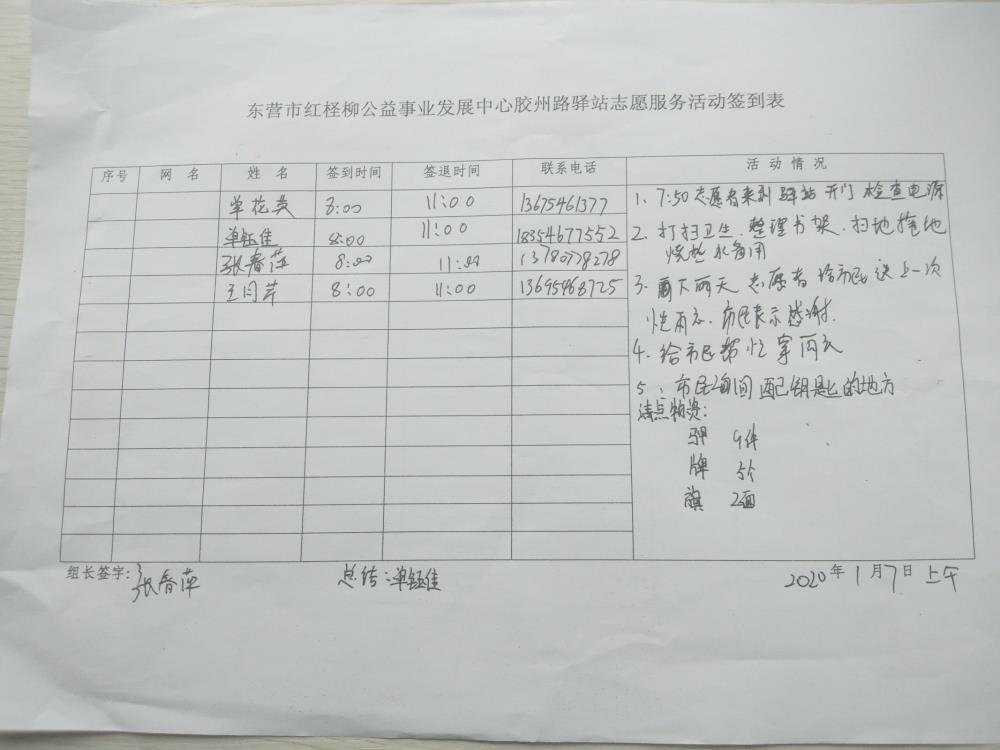 东营市红柽柳公益事业发展中心胶州路驿站志愿服务活动签到表
序号 网 名 姓 名 签到时间 签退时间 联系电话 活 动 情 况
单花英 8:00 11:00 13675461377
单钰佳 8:00 11:00 18354677552
张春萍 8:00 11:00 13780778278
王月芹 8:00 11:00 13695468725
1、7:50志愿者来到驿站开门检查电源
2、打扫卫生、整理书架、扫地拖地
烧水备用
3、雨天志愿者给市民送上一次
性雨衣、市民表示感谢.
4、给市民帮忙拿雨衣
5、市民询问配钥匙的地方
清点物资:
9件
牌 5个
旗 2面
组长签字: 张春萍 总结:单钰佳 2020年1月7日 上午